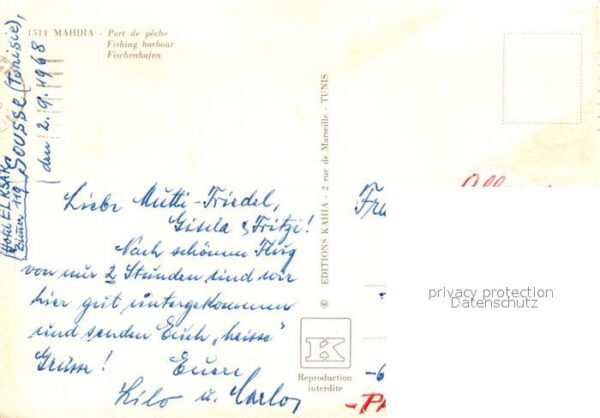 1514 MAHDIA - Port de pêche
Fishing harbour
Fischenhafen
Hotel EL KSAR
Zimmer 119
Sousse (Tunisie),
den 2.9.1968
Liebe Mutti-Friedel,
Gisela & Fritzi!
Nach schönem Flug
von nur 2 Stunden sind wir
hier gut untergekommen
und senden Euch „heisse"
Grüsse! Euere
Lilo u. Carlos
© EDITIONS KAHIA - 2 rue de Marseille - TUNIS
K
Reproduction
interdite
Fra
privacy protection
Datenschutz